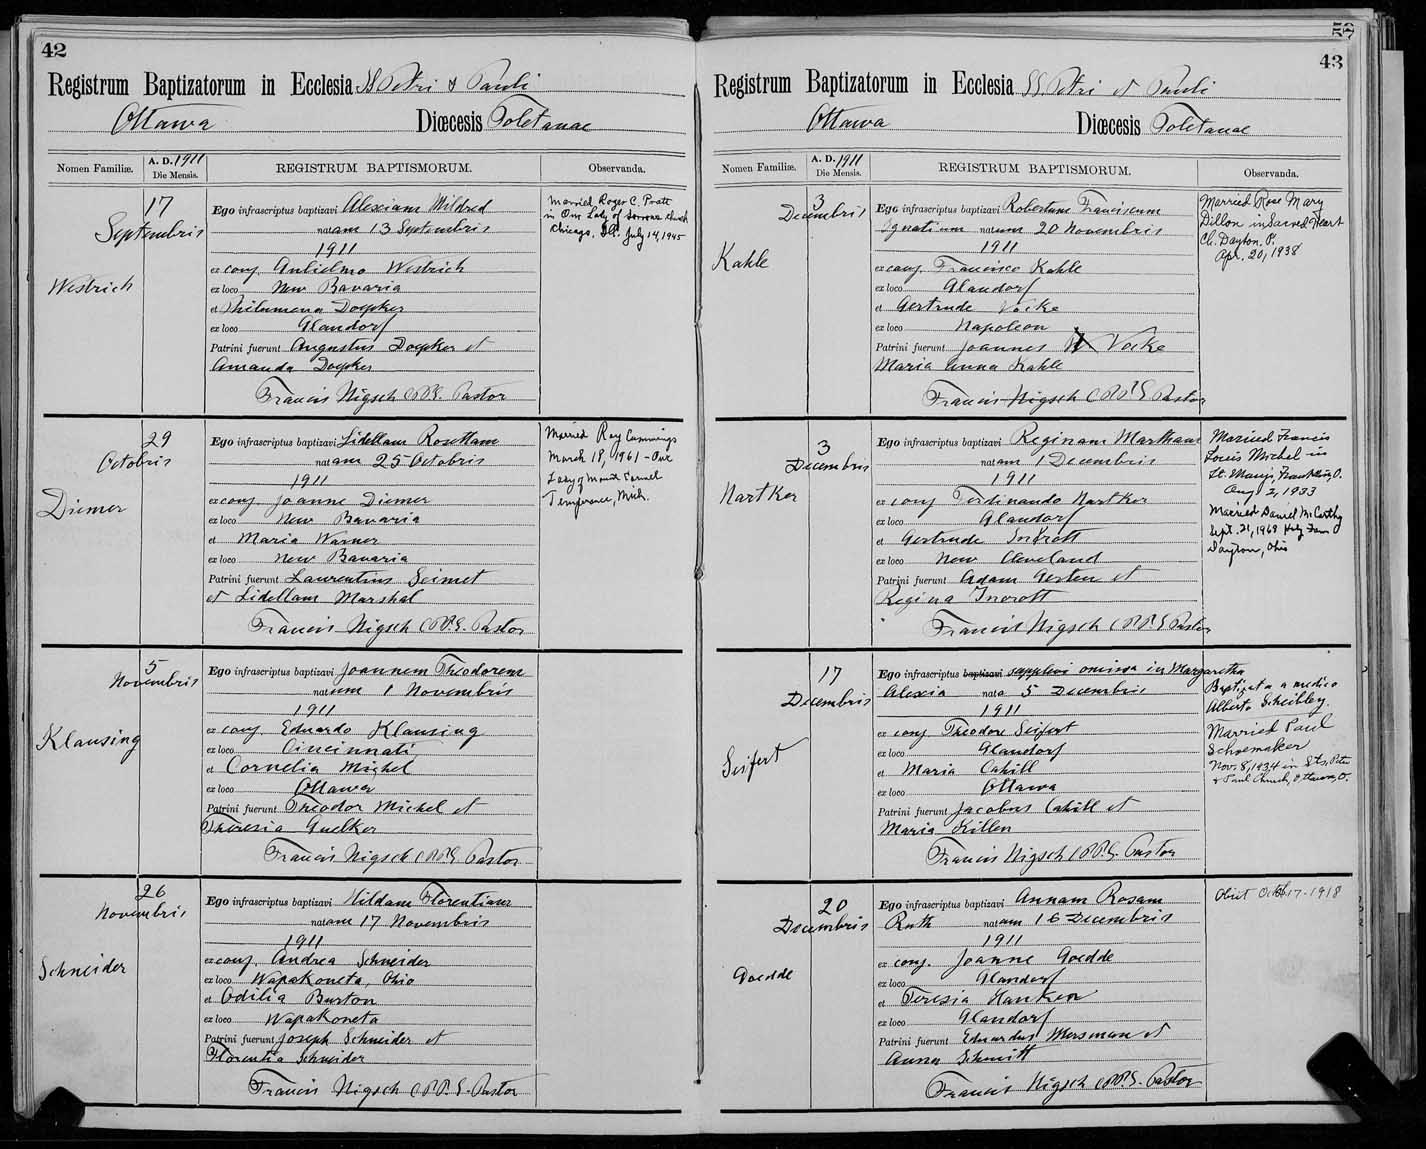 42
Registrum Baptizatorum in Ecclesia SS Petri & Pauli
Ottawa Diœcesis Toletanae
Nomen Familiæ. A. D. 1911 Die Mensis. REGISTRUM BAPTISMORUM. Observanda.
17
Septembris
Westrich
Ego infrascriptus baptizavi Alexiam Mildred
natam 13 Septembris
1911
ex conj. Antielmo Westrich
ex loco New Bavaria
et Philumena Doepker
ex loco Glandorf
Patrini fuerunt Augustus Doepker et
Amanda Doepker
Francis Nigsch C.PP.S. Pastor
Married Roger C. Pratt
in Our Lady of Sorrows church
Chicago, Ill. July 14, 1945
29
Octobris
Diemer
Ego infrascriptus baptizavi Lidellam Rosettam
natam 25 Octobris
1911
ex conj. Joanne Diemer
ex loco New Bavaria
et Maria Warner
ex loco New Bavaria
Patrini fuerunt Laurentius Seimet
et Lidellam Marshal
Francis Nigsch C.PP.S. Pastor
Married Ray Cummings
March 18, 1961 - Our
Lady of Mount Carmel
Temperance, Mich.
5
Novembris
Klausing
Ego infrascriptus baptizavi Joannem Theodorem
natum 1 Novembris
1911
ex conj. Eduardo Klausing
ex loco Cincinnati
et Cornelia Michel
ex loco Ottawa
Patrini fuerunt Theodor Michel et
Theresia Guelker
Francis Nigsch C.PP.S. Pastor
26
Novembris
Schneider
Ego infrascriptus baptizavi Hildam Florentiam
natam 17 Novembris
1911
ex conj. Andrea Schneider
ex loco Wapakoneta, Ohio
et Odilia Burton
ex loco Wapakoneta
Patrini fuerunt Joseph Schneider et
Florentia Schneider
Francis Nigsch C.PP.S. Pastor
43
Registrum Baptizatorum in Ecclesia SS. Petri et Pauli
Ottawa Diœcesis Toletanae
Nomen Familiæ. A. D. 1911 Die Mensis. REGISTRUM BAPTISMORUM. Observanda.
3
Decembris
Kahle
Ego infrascriptus baptizavi Robertum Franciscum
Ignatium natum 20 Novembris
1911
ex conj. Francisco Kahle
ex loco Glandorf
et Gertrude Vocke
ex loco Napoleon
Patrini fuerunt Joannes Vocke
Maria Anna Kahle
Francis Nigsch C.PP.S Pastor
Married Rose Mary
Dillon in Sacred Heart
Ch. Dayton, O.
Apr. 20, 1938
3
Decembris
Nartker
Ego infrascriptus baptizavi Reginam Martham
natam 1 Decembris
1911
ex conj Ferdinando Nartker
ex loco Glandorf
et Gertrude Inkrott
ex loco New Cleveland
Patrini fuerunt Adam Gerten et
Regina Incrott
Francis Nigsch C.PP.S Pastor
Married Francis
Louis Michel in
St. Mary's, Franklin, O.
Aug 2, 1933
Married Daniel McCarthy
Sept. 21, 1968 Holy Fam
Dayton, Ohio
17
Decembris
Seifert
Ego infrascriptus baptizavi supplevi omissa in Margaretha
Alexia nata 5 Decembris
1911
ex conj Theodore Seifert
ex loco Glandorf
et Maria Cahill
ex loco Ottawa
Patrini fuerunt Jacobus Cahill et
Maria Killen
Francis Nigsch C.PP.S. Pastor
Baptizata a medico
Alberto Scheibley.
Married Paul
Schoemaker
Nov. 8, 1934 in Sts. Peter
& Paul Church, Ottawa, O.
20
Decembris
Goedde
Ego infrascriptus baptizavi Annam Rosam
Ruth natam 16 Decembris
1911
ex conj. Joanne Goedde
ex loco Glandorf
et Teresia Hanken
ex loco Glandorf
Patrini fuerunt Eduardus Mersman et
Anna Schmitt
Francis Nigsch C.PP.S. Pastor
Obiit Octob 17-1918